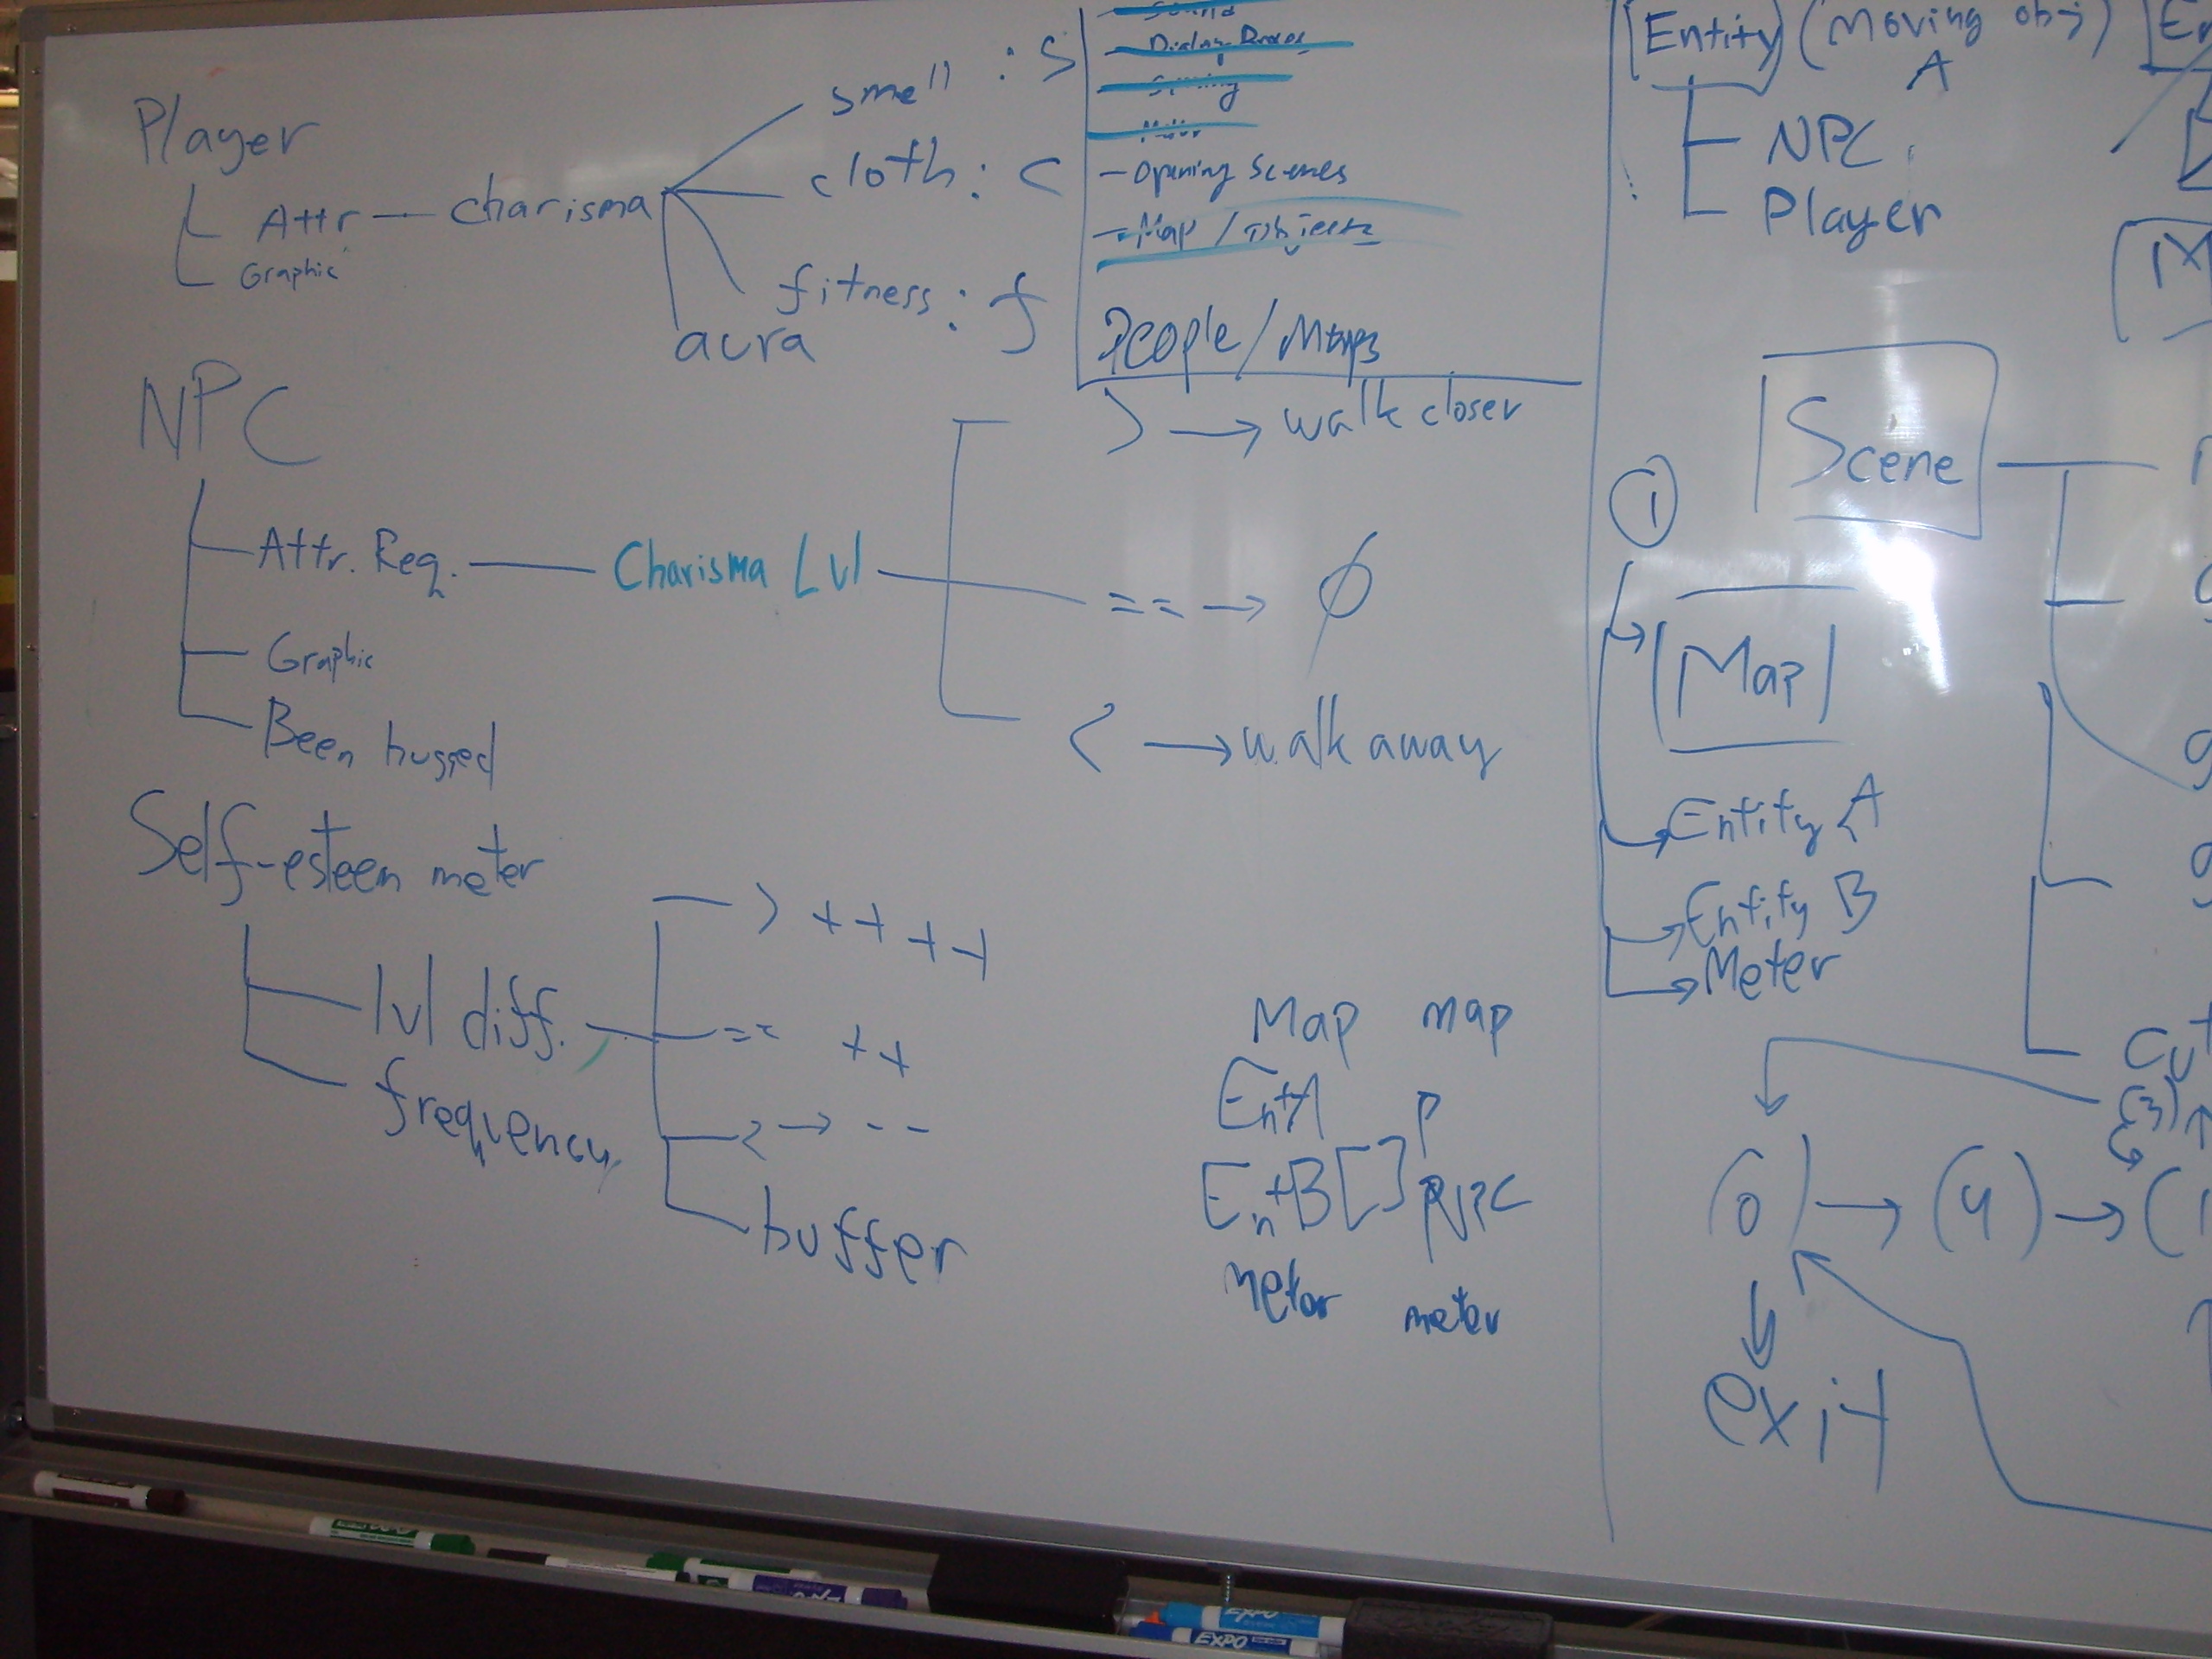 Player
Attr — charisma
Graphic
smell : S
cloth : C
fitness : f
aura
- Opening Scenes
- Map / Objects
People / Maps
NPC
Attr. Req. — Charisma Lvl
Graphic
Been hugged
> → walk closer
== → ∅
< → walk away
Self-esteem meter
lvl diff.
frequency
> ++++
== ++
< → --
buffer
Map map
EntA P
EntB[] NPC
meter meter
[Entity] (Moving obj)
A
NPC
Player
Scene
①
Map
Entity A
Entity B
Meter
(3)
(0) → (4) → (1
exit
EXPO
EXPO